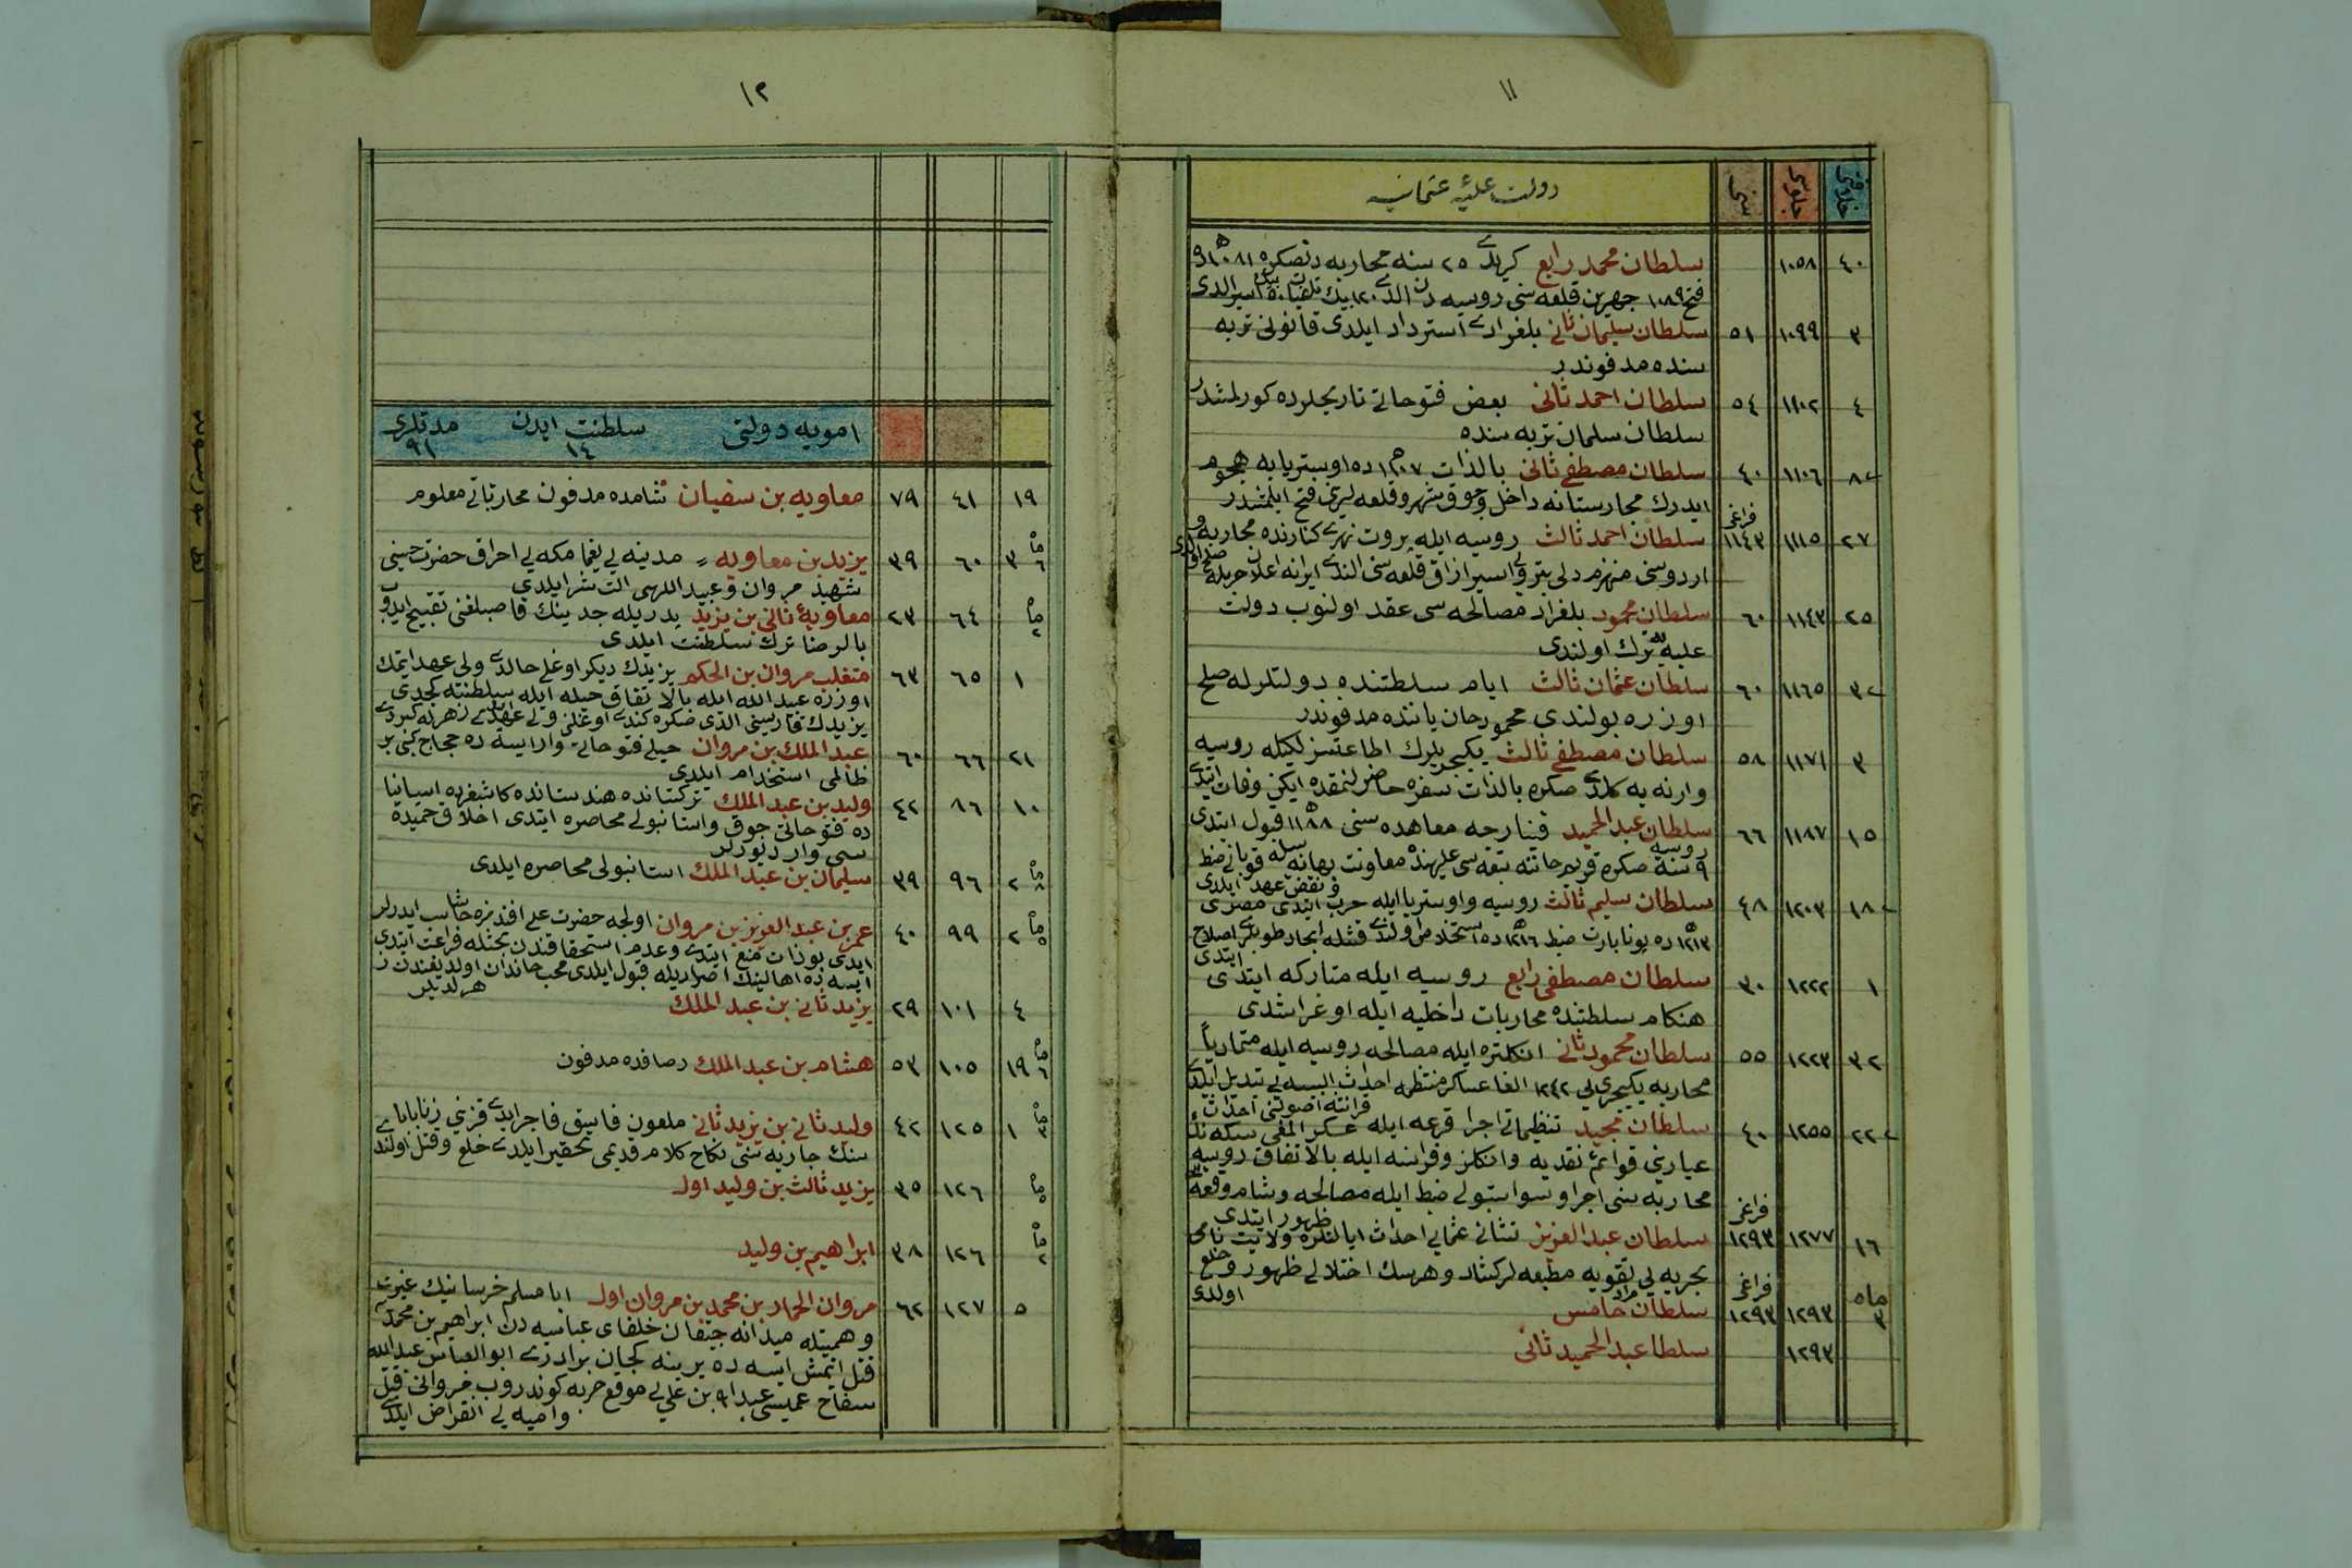 ١١
خلافتى جلوسى سنى دولت عليۀ عثمانيه
٤٠ ١٠٥٨ سلطان محمد رابع كريدى ٢٥ سنه محاربه دنصكره ١٠٨١
فتح ١٠٨٩ جهرين قلعه سنى روسيه دن الدى ١٢٠ بيك اسير الدى
٣ ١٠٩٩ ٥١ سلطان سليمان ثانى بلغرادى استرداد ايلدى قانونى تربه
سنده مدفوندر
٤ ١١٠٢ ٥٤ سلطان احمد ثانى بعض فتوحاتى تاريخلرده كورلمشدر
سلطان سلمان تربه سنده
٨ ١١٠٦ ٤٠ سلطان مصطفى ثانى بالذات ١١٠٧ ده اوستريايه هجوم
ايدرك مجارستانه داخل وچوق شهر وقلعه لرى فتح ايلمشدر
٢٧ ١١١٥ فراغى ١١٤٣ سلطان احمد ثالث روسيه ايله پروت نهرى كنارنده محاربه و
اردوسنى منهزم دلى بترو يى اسير ازاق قلعه سنى الدى ايرانه اعلان حربله
٢٥ ١١٤٣ ٦٠ سلطان محمود بلغراد مصالحه سى عقد اولنوب دولت
عليه يه ترك اولندى
٣ ١١٦٥ ٦٠ سلطان عثمان ثالث ايام سلطتنده دولتلرله صلح
اوزره بولندى محمودخان ياننده مدفوندر
٣ ١١٧١ ٥٨ سلطان مصطفى ثالث يكيچريلرك اطاعتسزلكيله روسيه
وارنه يه كلدى صكره بالذات سفره حاضرلنمقده ايكن وفات ايتدى
١٥ ١١٨٧ ٦٦ سلطان عبد الحميد قينارجه معاهده سنى ١١٨٨ قبول ايتدى
روسيه ٩ سنه صكره قريم خاننه تبعه سى عليهنده معاونت بهانه سيله قوبانى ضبط
و نقض عهد ايلدى
١٨ ١٢٠٣ ٤٨ سلطان سليم ثالث روسيه واوستريا ايله حرب ايتدى مصرى
١٢١٣ ده بوناپارت ضبط ١٢١٦ ده استخلاص اولندى قشله ايجاد طوپلرى اصلاح
ايتدى
١ ١٢٢٢ ٣٠ سلطان مصطفى رابع روسيه ايله متاركه ايتدى
هنكام سلطتنده محاربات داخليه ايله اوغراشدى
٣٢ ١٢٢٣ ٥٥ سلطان محمود ثانى انكلتره ايله مصالحه روسيه ايله متمادياً
محاربه يكيچرى لى ١٢٤٢ الغا عساكر منتظمه احداث البسه يى تبديل ايلدى
قرانتنه اصولنى احداث
٢٢ ١٢٥٥ ٤٠ سلطان مجيد تنظيماتى اجرا قرعه ايله عسكر المغى سكه نك
عيارينى قوائم نقديه وانكلز وفرانسه ايله بالاتفاق روسيه
محاربه سنى اجرا وسواستبولى ضبط ايله مصالحه وشام وقعه سى
ظهور ايتدى
١٦ ١٢٧٧ فراغى ١٢٩٣ سلطان عبد العزيز نشانى عثمانى احداث ايالتلره ولايت نامى
بحريه يى تقويه مطبعه لر كشاد وهرسك اختلالى ظهور وخلع
اولدى
ماه ٣ ١٢٩٣ فراغى ١٢٩٣ سلطان مراد خامس
١٢٩٣ سلطا عبد الحميد ثانى
١٢
امويه دولتى سلطنت ايدن ١٤ مدتلرى ٩١
١٩ ٤١ ٧٩ معاويه بن سفيان شامده مدفون محارباتى معلوم
ماه ٦ ٣ ٦٠ ٣٩ يزيد بن معاويه مدينه يى يغما مكه يى احراق حضرت حسينى
شهيد مروان وعبيد اللهى الت شر ايلدى
ماه ٢ ٦٤ ٢٣ معاويۀ ثانى بن يزيد پدريله جدينك غاصبلغنى تقبيح ايدوب
بالرضا ترك سلطنت ايلدى
١ ٦٥ ٦٣ متغلب مروان بن الحكم يزيدك ديكر اوغلى خالدى ولى عهد ايتمك
اوزره عبيد الله ايله بالاتفاق حيله ايله سلطنته كچدى
يزيدك قاريسنى الدى صكره كندى اوغلنى ولى عهد
٢١ ٦٦ ٦٠ عبد الملك بن مروان خيلى فتوحاتى وار ايسه ده حجاج كبى بر
ظالمى استخدام ايلدى
١٠ ٨٦ ٤٢ وليد بن عبد الملك تركستانده هندستانده كاشغرده اسپانيا
ده فتوحاتى چوق واستانبولى محاصره ايتدى اخلاق حميده
سى وار ديورلر
ماه ٨ ٢ ٩٦ ٣٩ سليمان بن عبد الملك استانبولى محاصره ايلدى
ماه ٥ ٢ ٩٩ ٤٠ عمر بن عبد العزيز بن مروان اولجه حضرت على افندمزه
ايدى بوذات منع ايتدى وعدم استحقاقندن بحثله فراغت ايتدى
ايسه ده اهالينك اصراريله قبول ايلدى محب خاندان اولديغندن
٤ ١٠١ ٢٩ يزيد ثانى بن عبد الملك
ماه ٦ ١٩ ١٠٥ ٥٣ هشام بن عبد الملك رصافده مدفون
ماه ٣ ١ ١٢٥ ٤٢ وليد ثانى بن يزيد ثانى ملعون فاسق فاجر ايدى قزينى زنا باباسى
سنك جاريه سنى نكاح كلام قديمى تحقير ايلدى خلع وقتل اولندى
ماه ٥ ١٢٦ ٣٥ يزيد ثالث بن وليد اول
ماه ٢ ١٢٦ ٣٨ ابراهيم بن وليد
٥ ١٢٧ ٦٢ مروان الحمار بن محمد بن مروان اول ابا مسلم خرسانينك غيرت
وهمتيله ميدانه چيقان خلفاى عباسيه دن ابراهيم بن محمدى
قتل اتمش ايسه ده يرينه كچان برادرى ابو العباس عبد الله
سفاح عميسى عبد الله بن على يى موقع حربه كوندروب مروانى قتل
واميه يى انقراض ايلدى